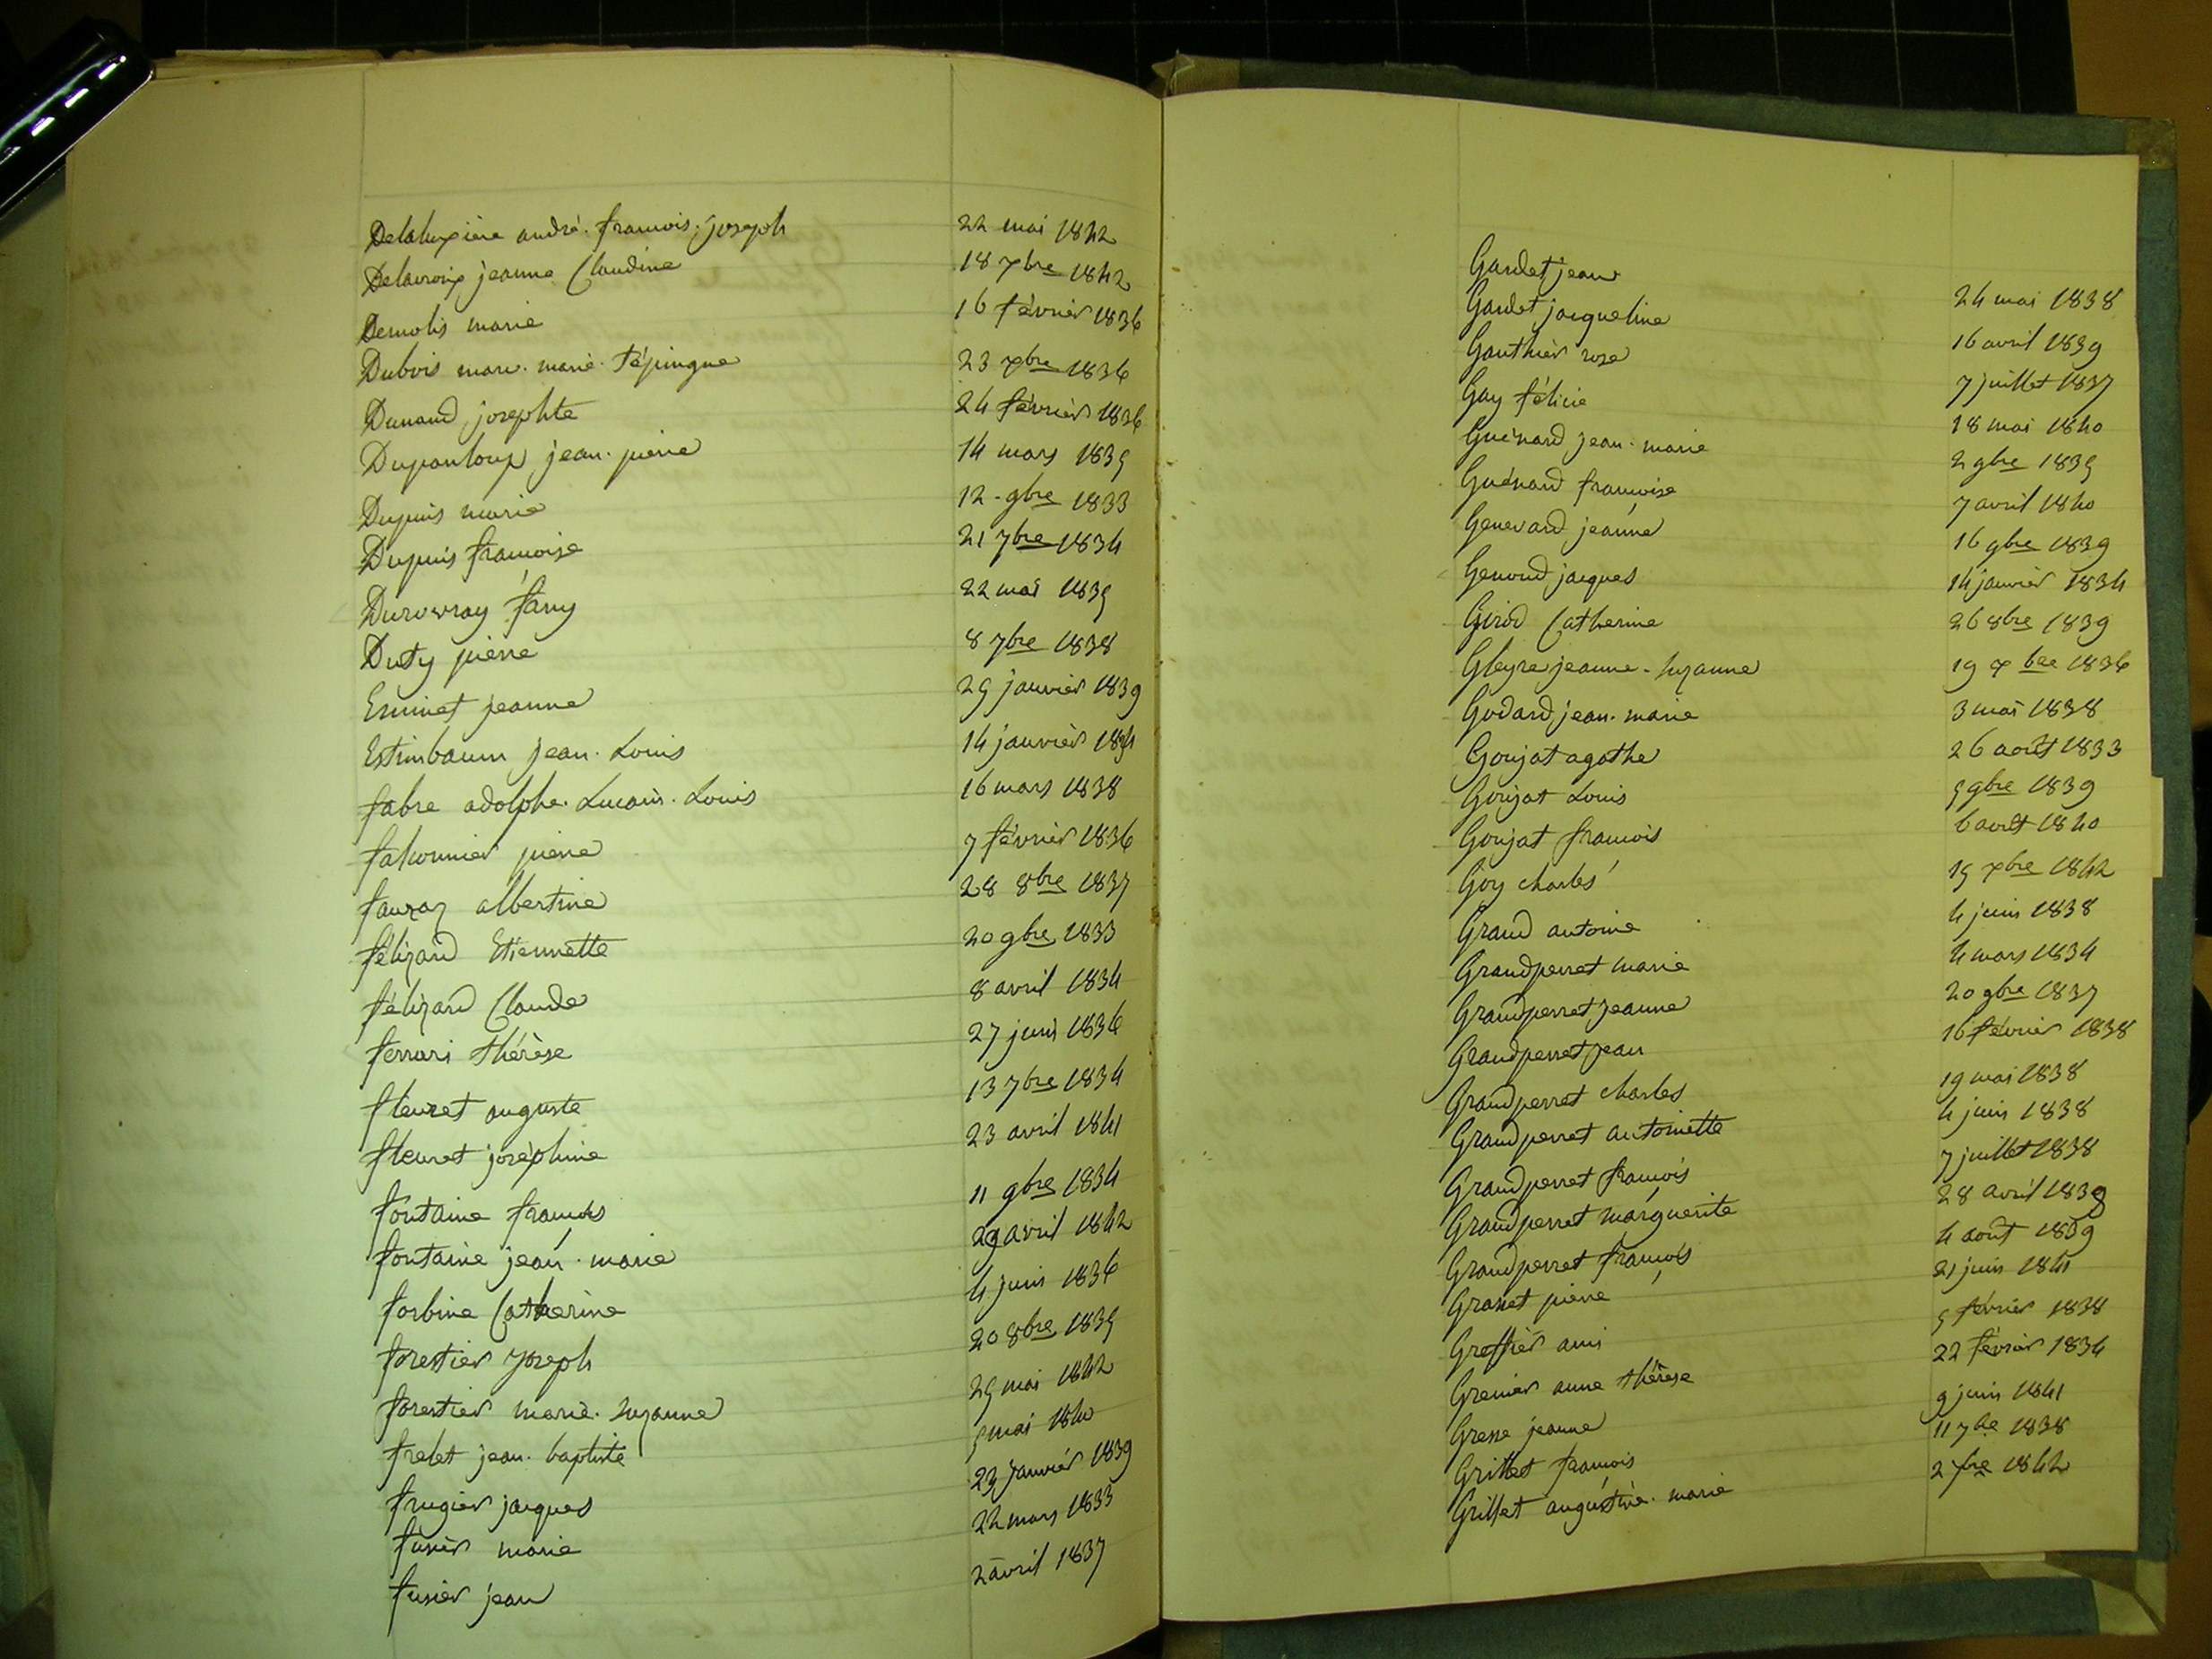 Delaluxière andré. françois. joseph 22 mai 1842
Delacroix jeanne Claudine 18 xbre 1842
Demolis marie 16 février 1836
Dubois marc. marie. 23 xbre 1836
Dunand josephte 24 février 1836
Dupanloup jean. pierre 14 mars 1835
Dupuis marie 12 gbre 1833
Dupuis françoise 21 7bre 1834
Durovray fany 22 mai 1835
Duty pierre 8 7bre 1838
Eminet jeanne 25 janvier 1839
Estimbaum jean. Louis 14 janvier
fabre adolphe. Lucain. Louis 16 mars 1838
falconnier pierre 7 février 1836
fauraz albertine 28 8bre 1837
félizard Etiennette 20 gbre 1833
félizard Claude 8 avril 1834
ferrari thérèse 27 juin 1836
fleuret auguste 13 7bre 1834
fleuret joséphine 23 avril 1841
fontaine françois 11 gbre 1834
fontaine jean. marie 29 avril 1842
forbine Catherine 4 juin 1836
forestier joseph 20 8bre 1835
forestier marie. suzanne 25 mai 1842
frelet jean. baptiste 5 mai 1840
frugier jacques 23 janvier 1839
fusier marie 22 mars 1833
fusier jean 2 avril 1837
Gardet jean 24 mai 1838
Gardet jacqueline 16 avril 1839
Gauthier rose 7 juillet 1837
Gay félicie 18 mai 1840
Guénard jean. marie 2 gbre 1835
Guénard françoise 7 avril 1840
Genevard jeanne 16 gbre 1839
Genoud jacques 14 janvier 1834
Girod Catherine 26 8bre 1839
Gleyre jeanne. suzanne 19 xbre 1836
Godard jean. marie 3 mai 1838
Goujat agathe 26 août 1833
Goujat Louis 5 gbre 1839
Goujat françois 6 août 1840
Goy charles 15 xbre 1842
Grand antoine 4 juin 1838
Grandperret marie 4 mars 1834
Grandperret jeanne 20 gbre 1837
Grandperret jean 16 février 1838
Grandperret charles 19 mai 1838
Grandperret antoinette 4 juin 1838
Grandperret françois 7 juillet 1838
Grandperret marguerite 28 avril 1839
Grandperret françois 4 août 1839
Granet pierre 21 juin 1841
Greffier ami 5 février 1838
Grenier anne thérèse 22 février 1834
Gresse jeanne 9 juin 1841
Grillet françois 11 7bre 1838
Grillet augustine. marie 2 1842